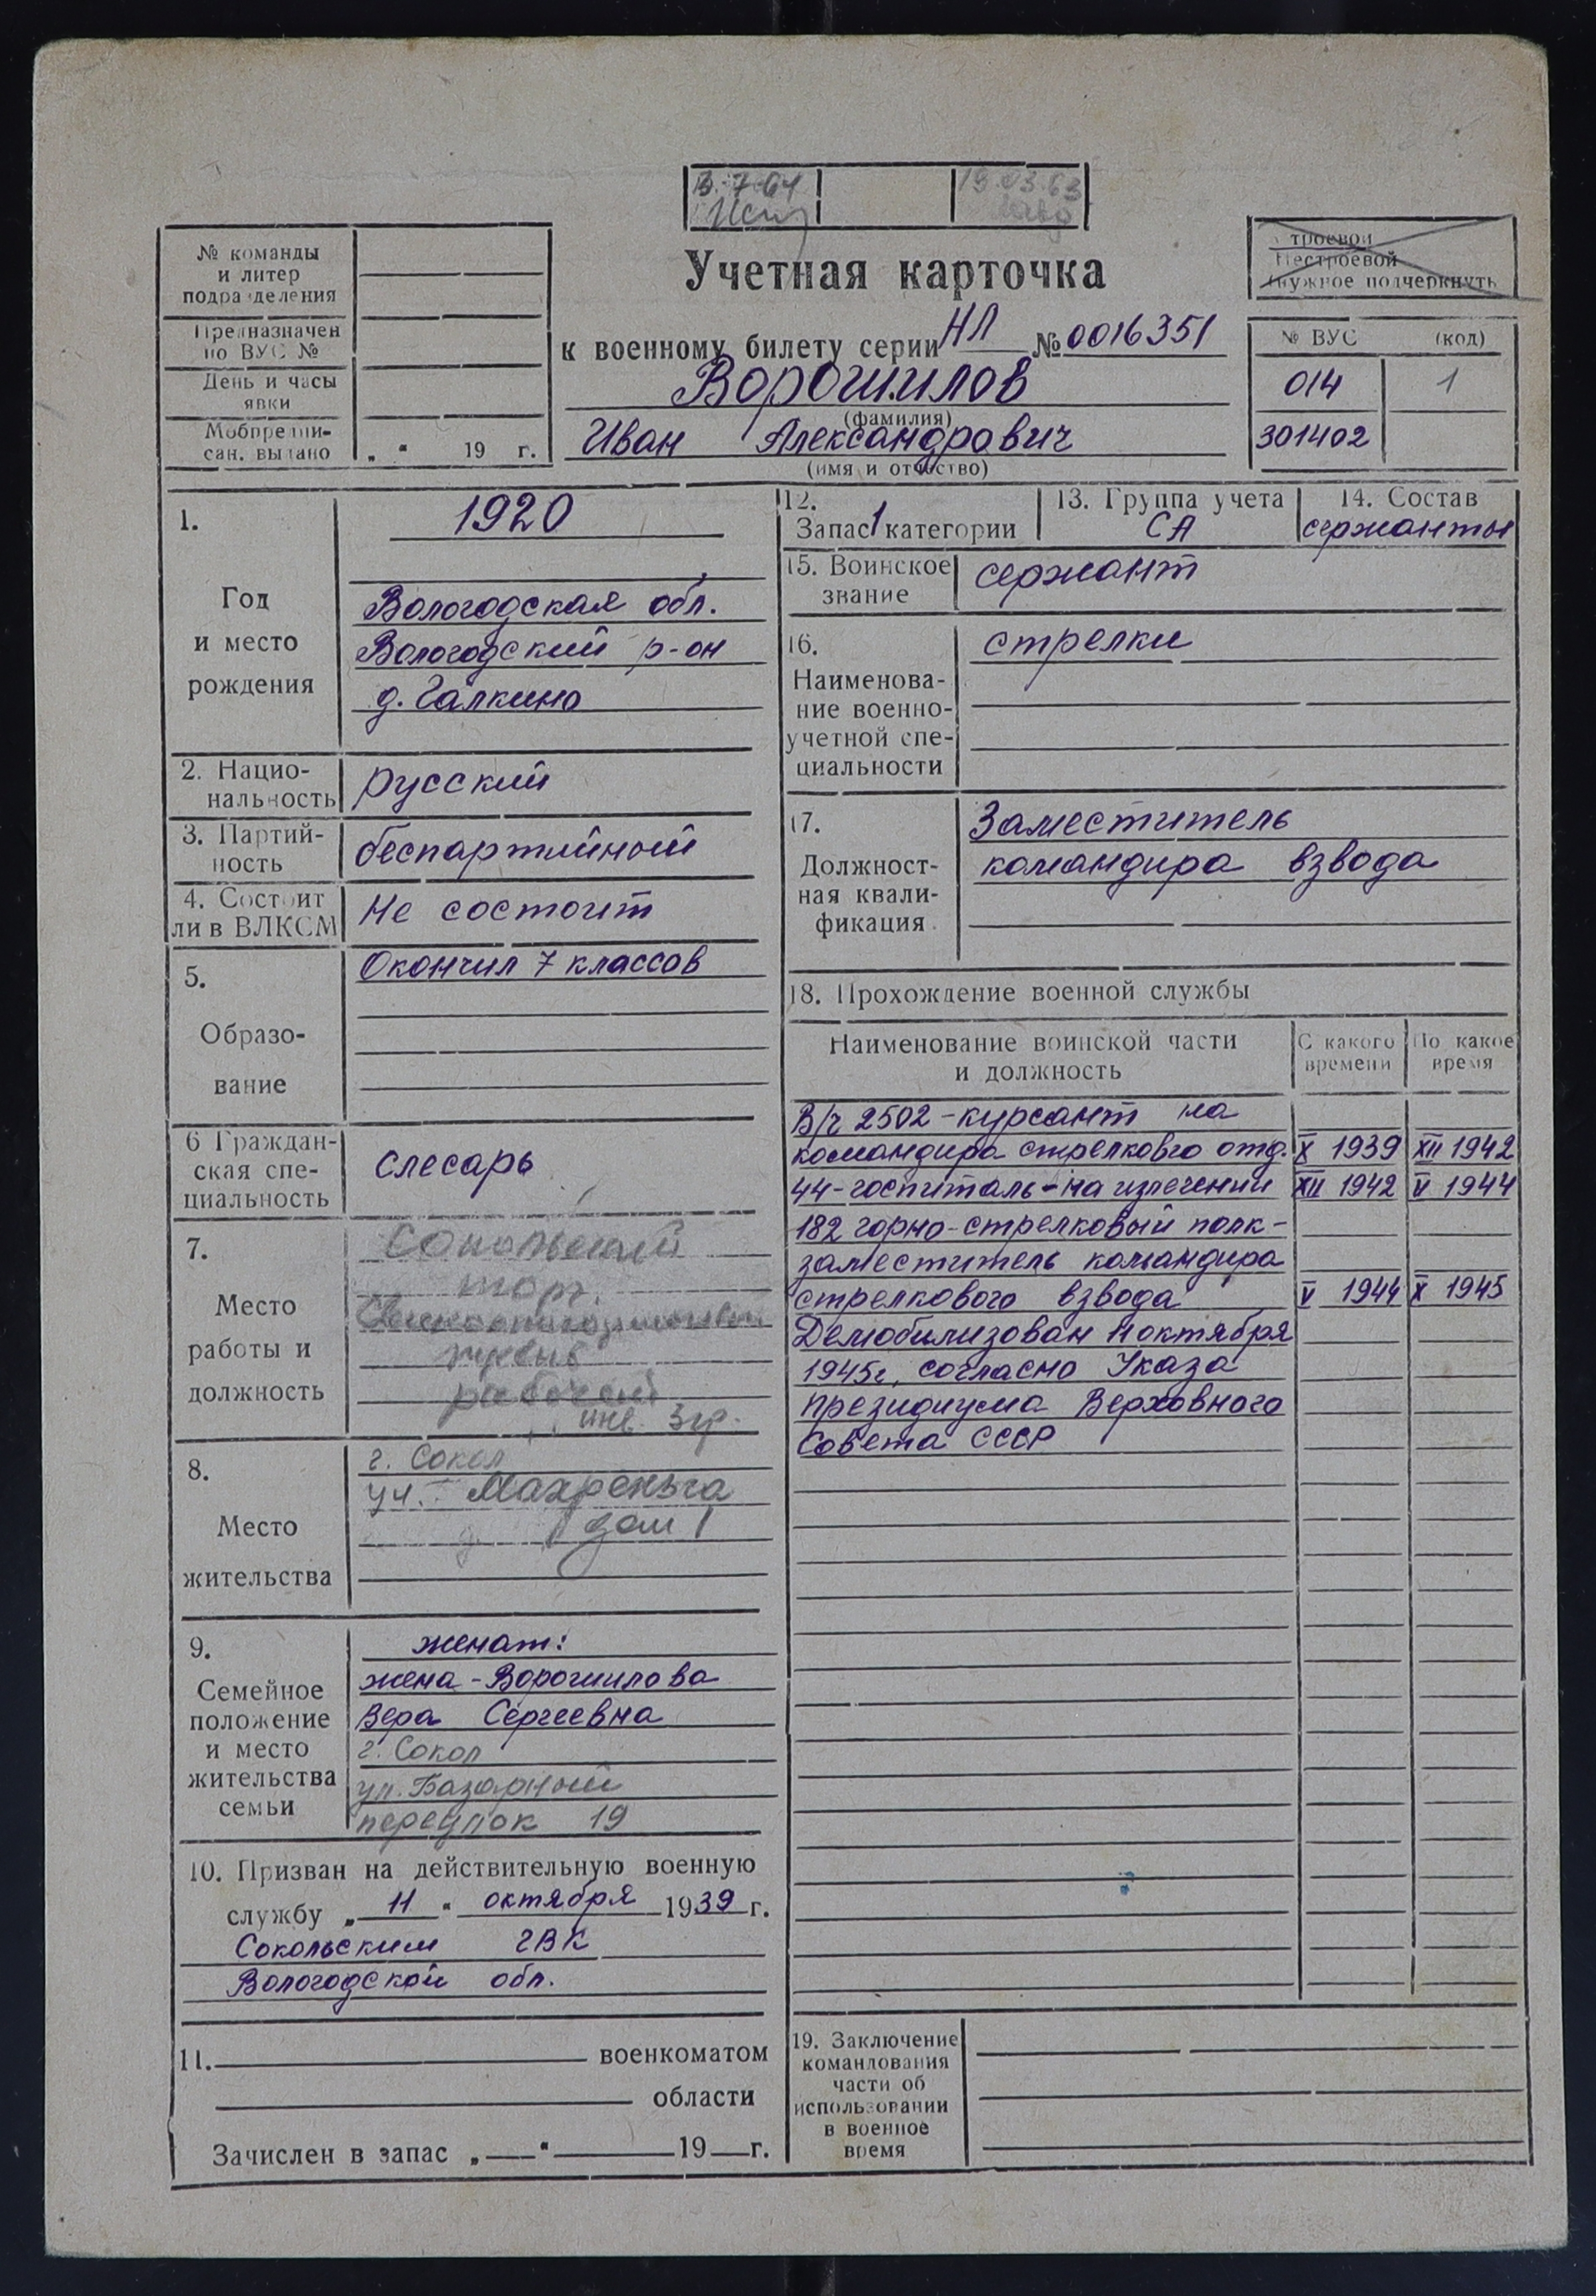 13.-7-64
19.03.63
№ команды
и литер
подразделения
Предназначен
по ВУС №
День и часы
явки
Мобпредпи-
сан. выдано „ “ 19 г.
Учетная карточка
к военному билету серии НЛ № 0016351
Ворошилов
(фамилия)
Иван Александрович
(имя и отчество)
Строевой
Нестроевой
(нужное подчеркнуть
№ ВУС (код)
014 1
301402
1.
Год
и место
рождения
1920
Вологодская обл.
Вологодский р-он
д. Галкино
2. Нацио-
нальность
русский
3. Партий-
ность
беспартийный
4. Состоит
ли в ВЛКСМ
Не состоит
5.
Образо-
вание
Окончил 7 классов
6 Граждан-
ская спе-
циальность
слесарь
7.
Место
работы и
должность
Сокольский
торг.
рабочий
инв. 3 гр.
8.
Место
жительства
г. Сокол
уч. Махреньга
дом 1
9.
Семейное
положение
и место
жительства
семьи
женат:
жена - Ворошилова
Вера Сергеевна
г. Сокол
ул. Базарный
переулок 19
10. Призван на действительную военную
службу „ 11 “ октября 1939 г.
Сокольским ГВК
Вологодской обл.
11. военкоматом
области
Зачислен в запас „ “ 19 г.
12.
Запас 1 категории
13. Группа учета
СА
14. Состав
сержанты
15. Воинское
звание
сержант
16.
Наименова-
ние военно-
учетной спе-
циальности
стрелки
17.
Должност-
ная квали-
фикация.
Заместитель
командира взвода
18. Прохождение военной службы
Наименование воинской части
и должность
С какого
времени
По какое
время
В/ч 2502 - курсант на
командира стрелковго отд. X 1939 XII 1942
44 - госпиталь - на излечении XII 1942 V 1944
182 горно-стрелковый полк -
заместитель командира
стрелкового взвода V 1944 X 1945
Демобилизован 11 октября
1945г, согласно Указа
Президиума Верховного
Совета СССР
19. Заключение
командования
части об
использовании
в военное
время